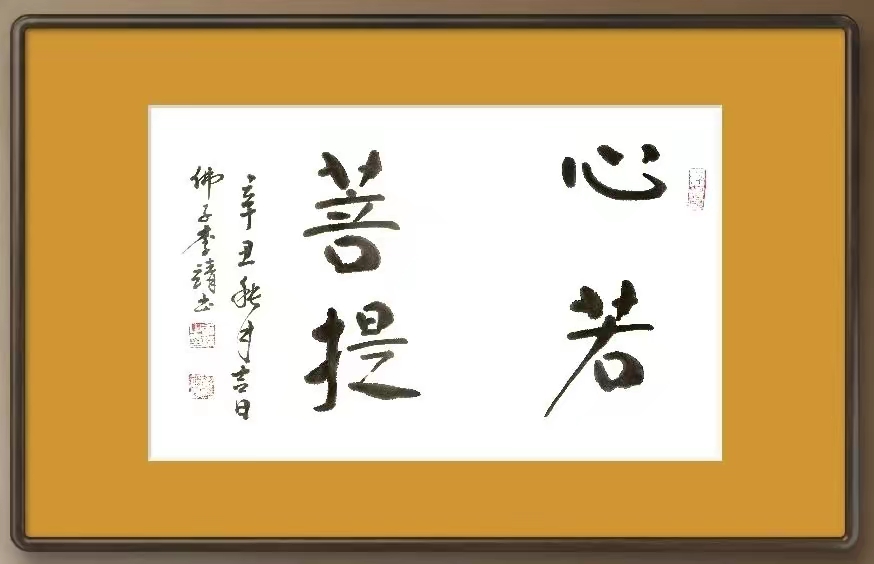 心若
菩提
辛丑秋月吉日
佛子李靖书